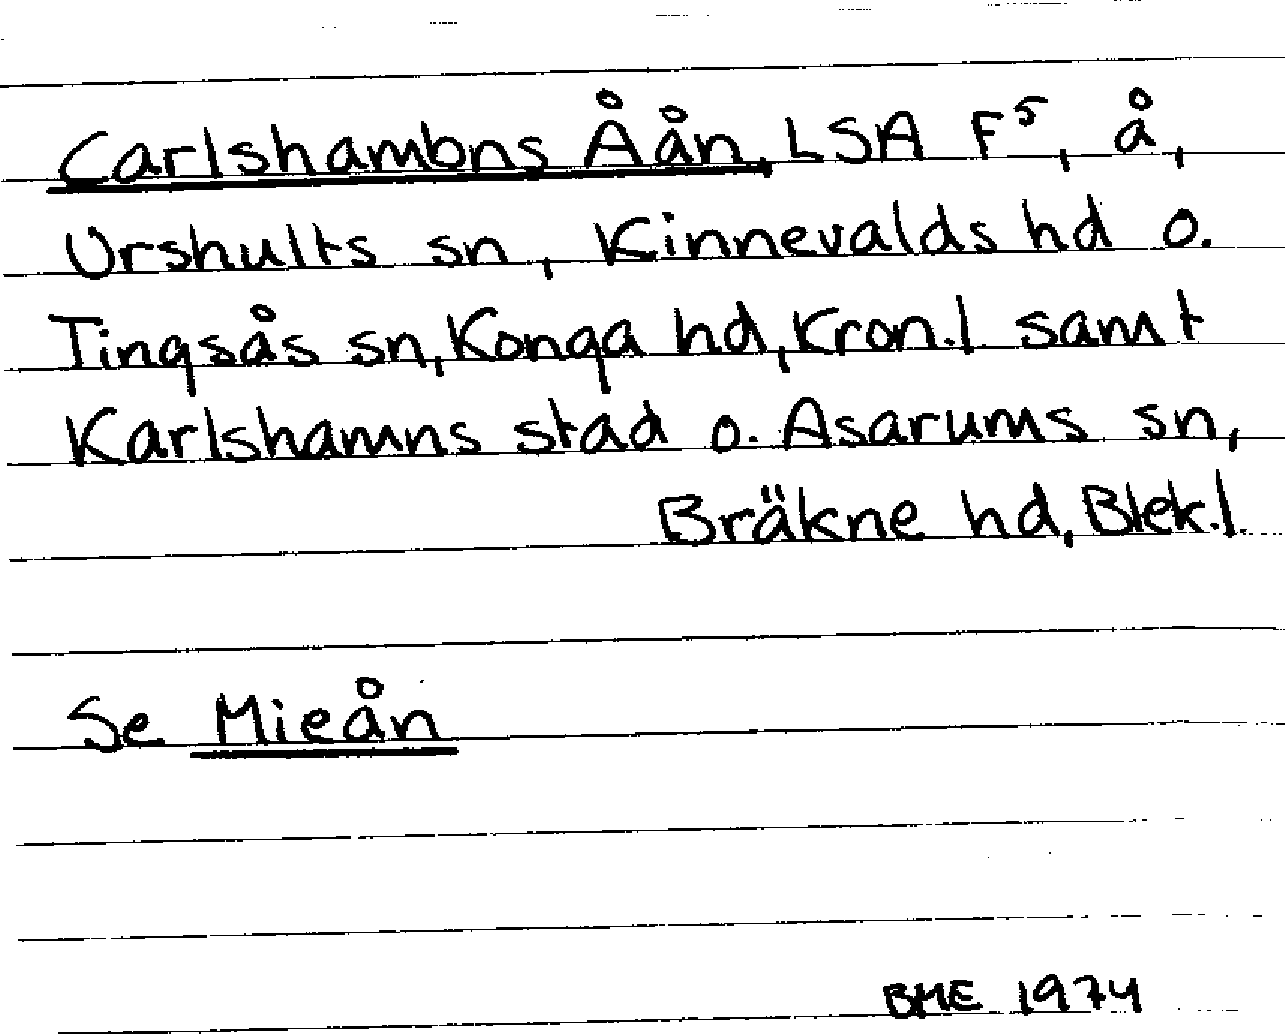 Carlshambns Åån, LSA F⁵, å,
Urshults sn, Kinnevalds hd o.
Tingsås sn, Konga hd, Kron.l. samt
Karlshamns stad o. Asarums sn,
Bräkne hd, Blek.l.
Se Mieån
BME 1974